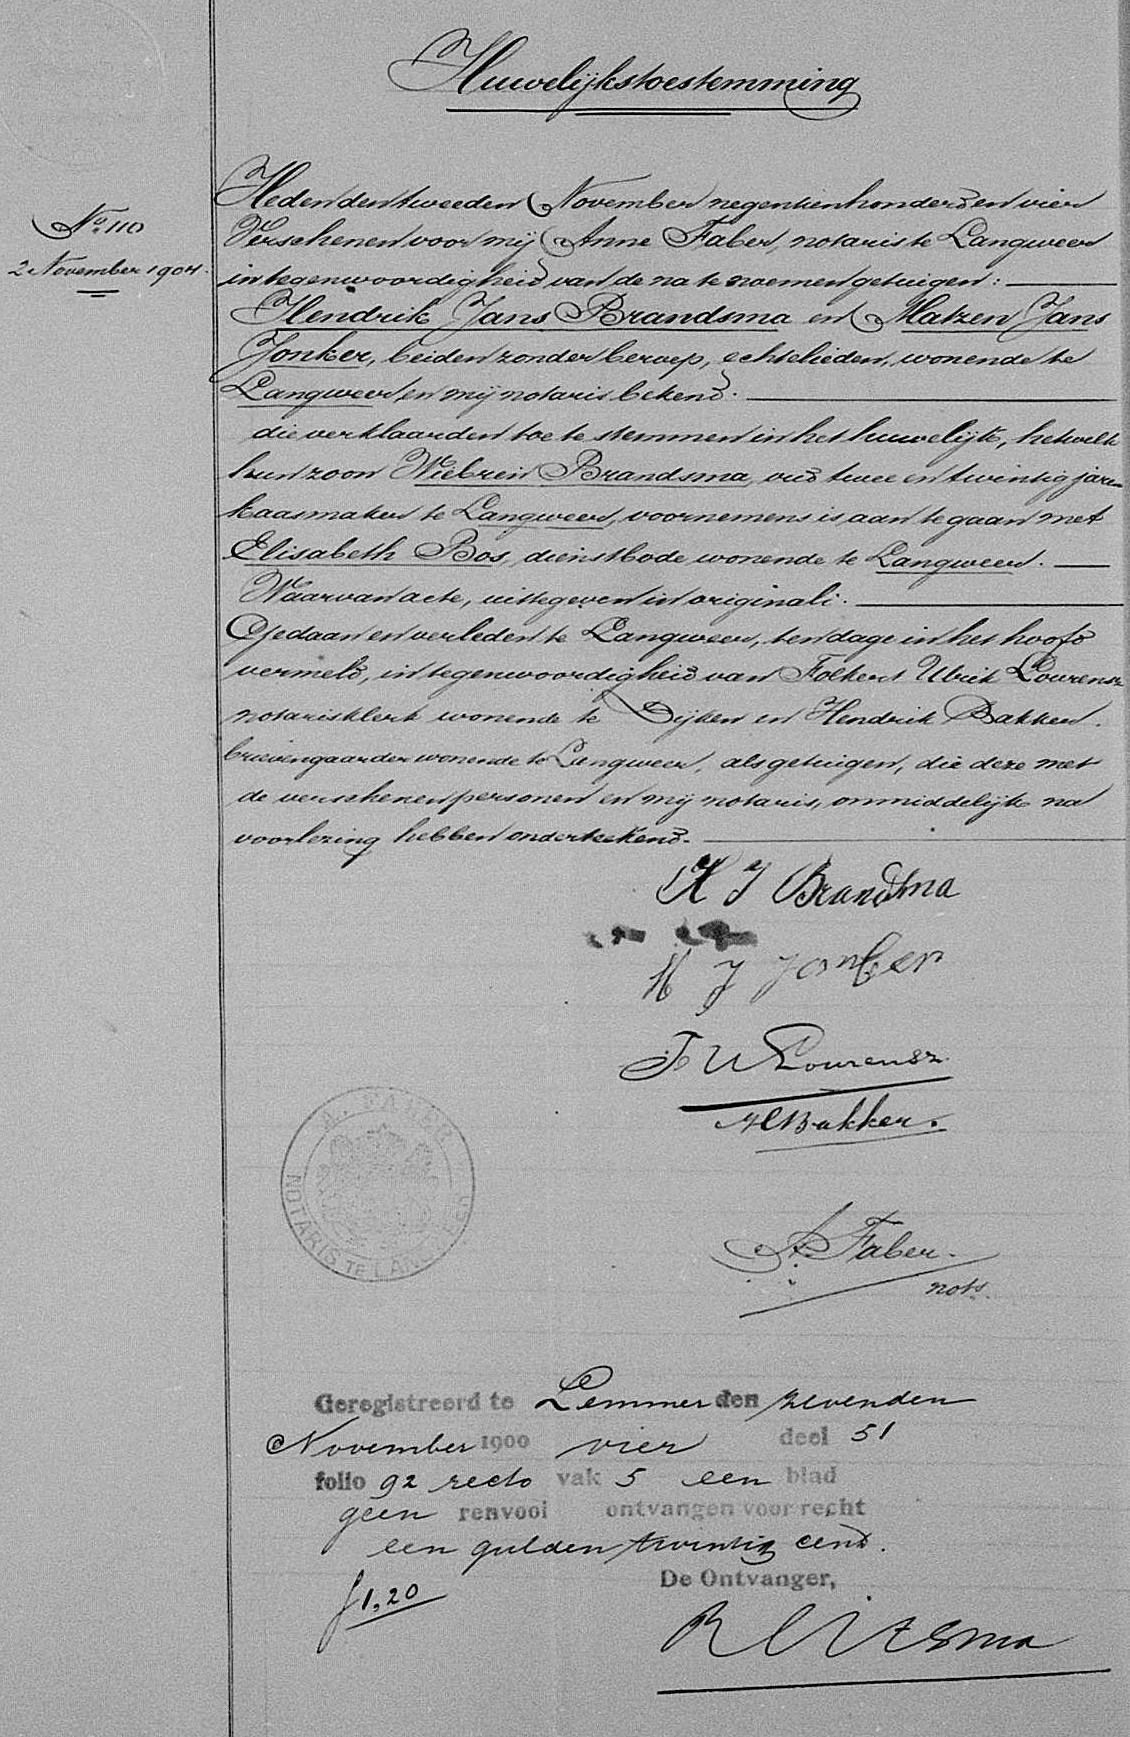 Huwelijkstoestemming
No. 110
2 November 1904.
Heden den tweeden November negentienhonderd en vier
Verschenen voor mij Anne Faber, notaris te Langweer
in tegenwoordigheid van de na te noemen getuigen:
Hendrik Jans Brandsma en Matzen Jans
Jonker, beiden zonder beroep, echtelieden, wonende te
Langweer en mij notaris bekend.
die verklaarden toe te stemmen in het huwelijk, hetwelk
hun zoon Wiebren Brandsma, oud twee en twintig jaren
kaasmaker te Langweer, voornemens is aan te gaan met
Elisabeth Bos, dienstbode wonende te Langweer.
Waarvan acte, uitgegeven in originali.
Gedaan en verleden te Langweer, ten dage in het hoofd
vermeld, in tegenwoordigheid van Folkert Ulrik Lourensz
notarisklerk wonende te Dijken en Hendrik Bakker.
brievengaarder wonende te Langweer, als getuigen, die deze met
de verschenen personen en mij notaris, onmiddelijk na
voorlezing hebben onderteekend.
H J Brandsma
M J Jonker
F U Lourensz.
H Bakker.
A. FABER
NOTARIS TE LANGWEER
A. Faber.
nots.
Geregistreerd te Lemmer den zevenden
November 1900 vier deel 51
folio 92 recto vak 5 een blad
geen renvooi ontvangen voor recht
een gulden twintig cent.
f 1,20
De Ontvanger,